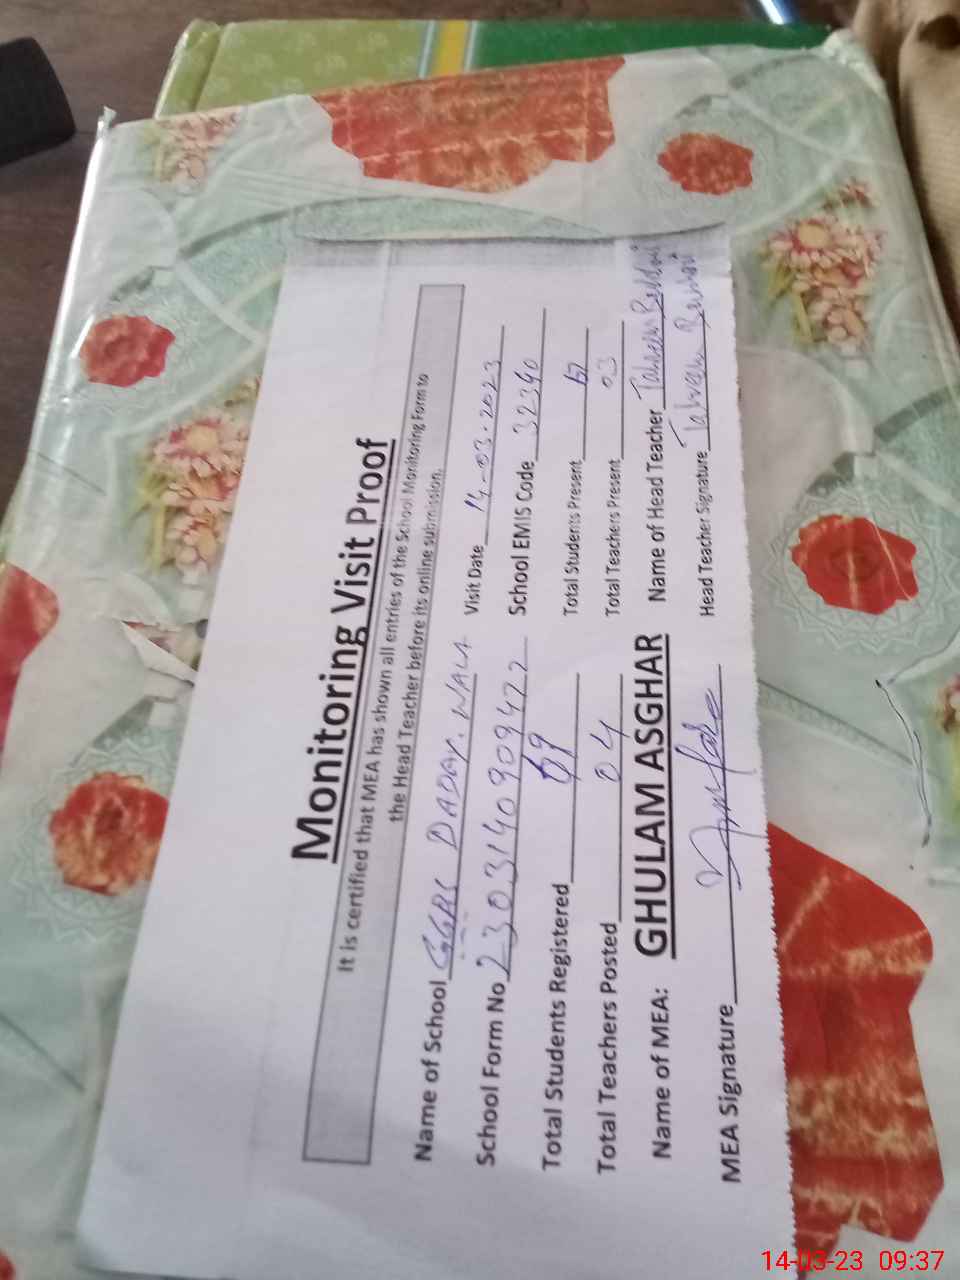 Monitoring Visit Proof
It is certified that MEA has shown all entries of the School Monitoring Form to
the Head Teacher before its online submission.
Name of School DADAY. WALA Visit Date 14-03-2023
School Form No 2303140909422 School EMIS Code 32390
Total Students Registered 69 Total Students Present 67
Total Teachers Posted 04 Total Teachers Present 03
Name of MEA: GHULAM ASGHAR Name of Head Teacher
MEA Signature Head Teacher Signature
14-03-23 09:37